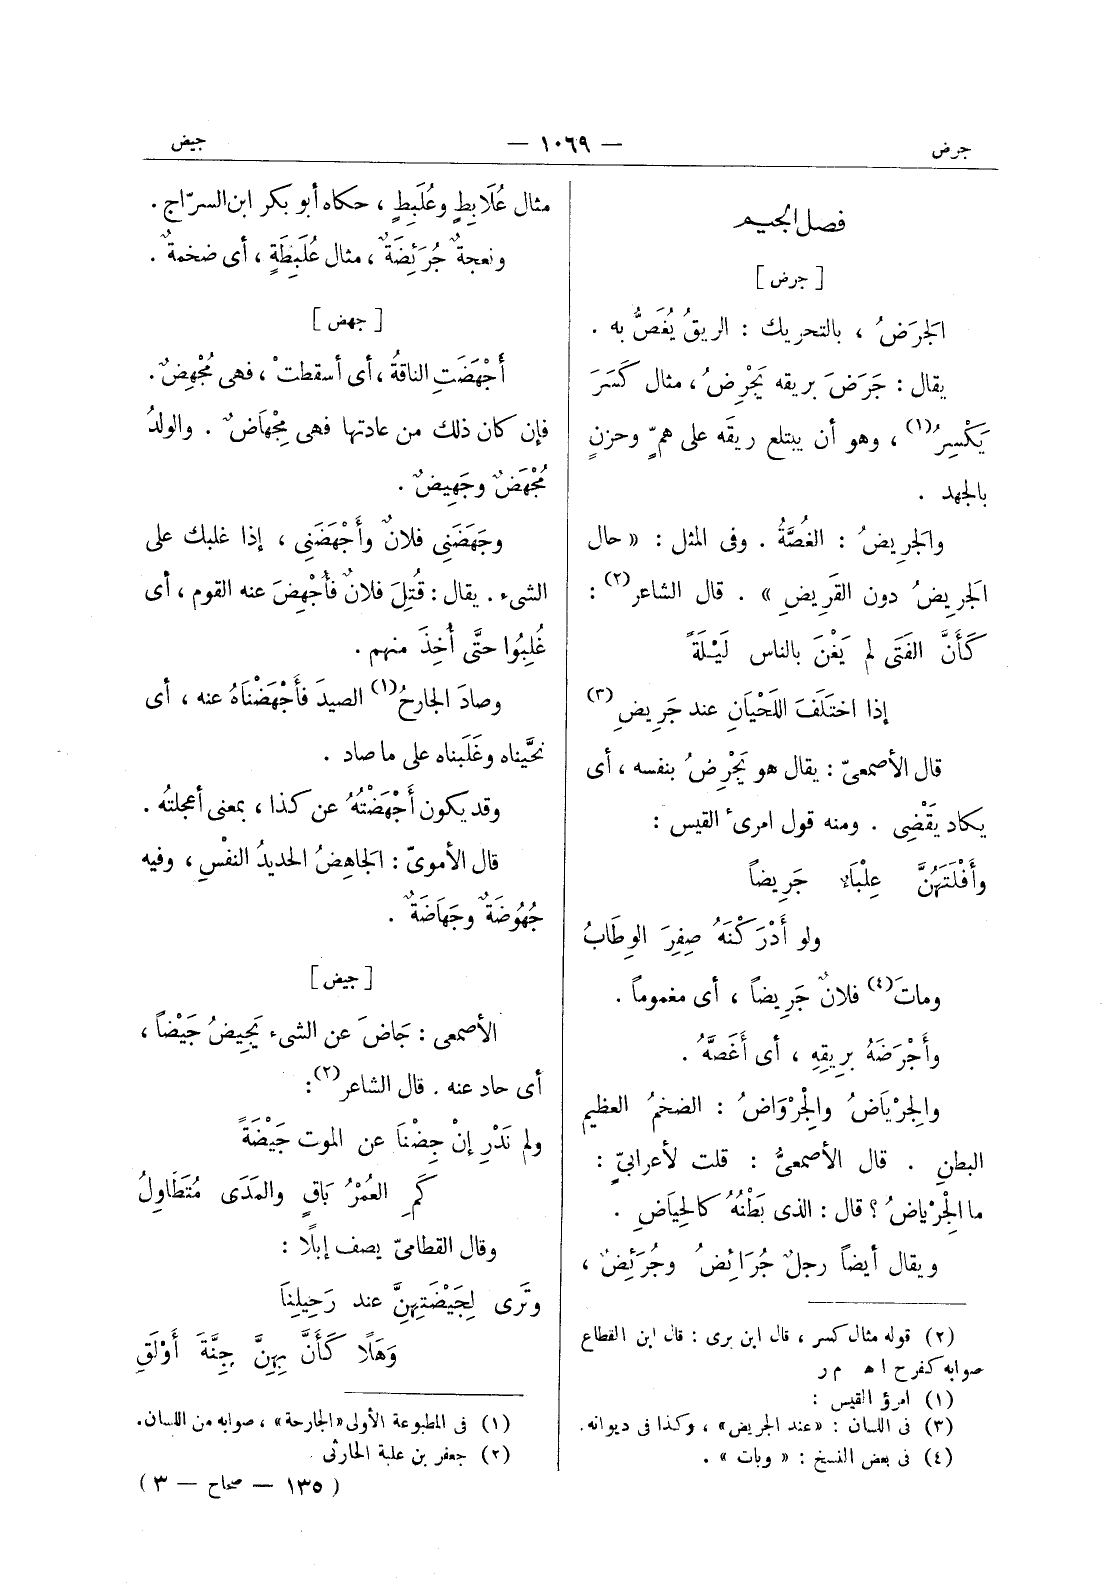 جرض
— ١٠٦٩ —
جيض
فصل الجيم
[ جرض ]
الجَرَضُ ، بالتحريك : الريقُ يُغَصُّ به .
يقال : جَرَضَ بريقه يَجْرِضُ ، مثال كَسَرَ
يَكْسِرُ(١) ، وهو أن يبتلع ريقَه على همٍّ وحزنٍ
بالجهد .
والجريضُ : الغُصَّةُ . وفى المثل : « حال
الجَريضُ دون القَريضِ » . قال الشاعر(٢) :
كَأَنَّ الفَتَى لم يَغْنَ بالناس لَيْلَةً
إذا اختَلَفَ اللَحْيَانِ عند جَرِيضِ(٣)
قال الأصمعىّ : يقال هو يَجْرِضُ بنفسه ، أى
يكاد يَقْضِى . ومنه قول امرئ القيس :
وأَفْلَتَهُنَّ عِلْبَاء جَرِيضاً
ولو أَدْرَكْنَهُ صِفِرَ الوِطَابُ
وماتَ(٤) فلانٌ جَرِيضاً ، أى مغموماً .
وأَجْرَضَهُ بِرِيقِهِ ، أى أَغَصَّهُ .
والجِرْيَاضُ والجِرْوَاضُ : الضخمُ العظيم
البطنِ . قال الأصمعىُّ : قلت لأعرابىٍّ :
ما الجِرْياضُ ؟ قال : الذى بَطْنُهُ كالحِيَاضِ .
ويقال أيضاً رجلٌ جُرَائِضُ وجُرَئِضٌ ،
(٢) قوله مثال كسر ، قال ابن برى : قال ابن القطاع
صوابه كفرح اه م ر
(١) امرؤ القيس :
(٣) فى اللسان : « عند الجريض » ، وكذا فى ديوانه .
(٤) فى بعض النسخ : « وبات » .
مثال عُلَابِطٍ وعُلَبِطٍ ، حكاه أبو بكر ابن السرّاج .
ونعجةٌ جُرَئِضَةٌ ، مثال عُلَبِطَةٍ ، أى ضخمةٌ .
[ جهض ]
أَجْهَضَتِ الناقةُ ، أى أسقطتْ ، فهى مُجْهِضٌ .
فإن كان ذلك من عادتها فهى مِجْهَاضٌ . والولدُ
مُجْهَضٌ وجَهِيضٌ .
وجَهَضَنِى فلانٌ وأَجْهَضَنِى ، إذا غلبك على
الشىء . يقال : قُتِلَ فلانٌ فأُجْهِضَ عنه القوم ، أى
غُلِبُوا حتَّى أُخِذَ منهم .
وصادَ الجارحُ(١) الصيدَ فأَجْهَضْنَاهُ عنه ، أى
نحَّيناه وغَلَبناه على ما صاد .
وقد يكون أَجْهَضْتُهُ عن كذا ، بمعنى أعجلتُه .
قال الأموىّ : الجَاهِضُ الحديدُ النفْسِ ، وفيه
جُهُوضَةٌ وجَهَاضَةٌ .
[ جيض ]
الأصمعى : جَاضَ عن الشىء يَجِيضُ جَيْضاً ،
أى حاد عنه . قال الشاعر(٢) :
ولم نَدْرِ إنْ جِضْنَا عن الموت جَيْضَةً
كَمِ العُمْرُ بَاقٍ والمَدَى مُتَطَاوِلُ
وقال القطامىّ يصف إبلًا :
وتَرَى لِجَيْضَتِهِنَّ عند رَحِيلِنَا
وَهَلًا كَأَنَّ بِهِنَّ جِنَّةَ أَوْلَقِ
(١) فى المطبوعة الأولى « الجارحة » ، صوابه من اللسان .
(٢) جعفر بن علبة الحارثى
( ١٣٥ — صحاح — ٣ )